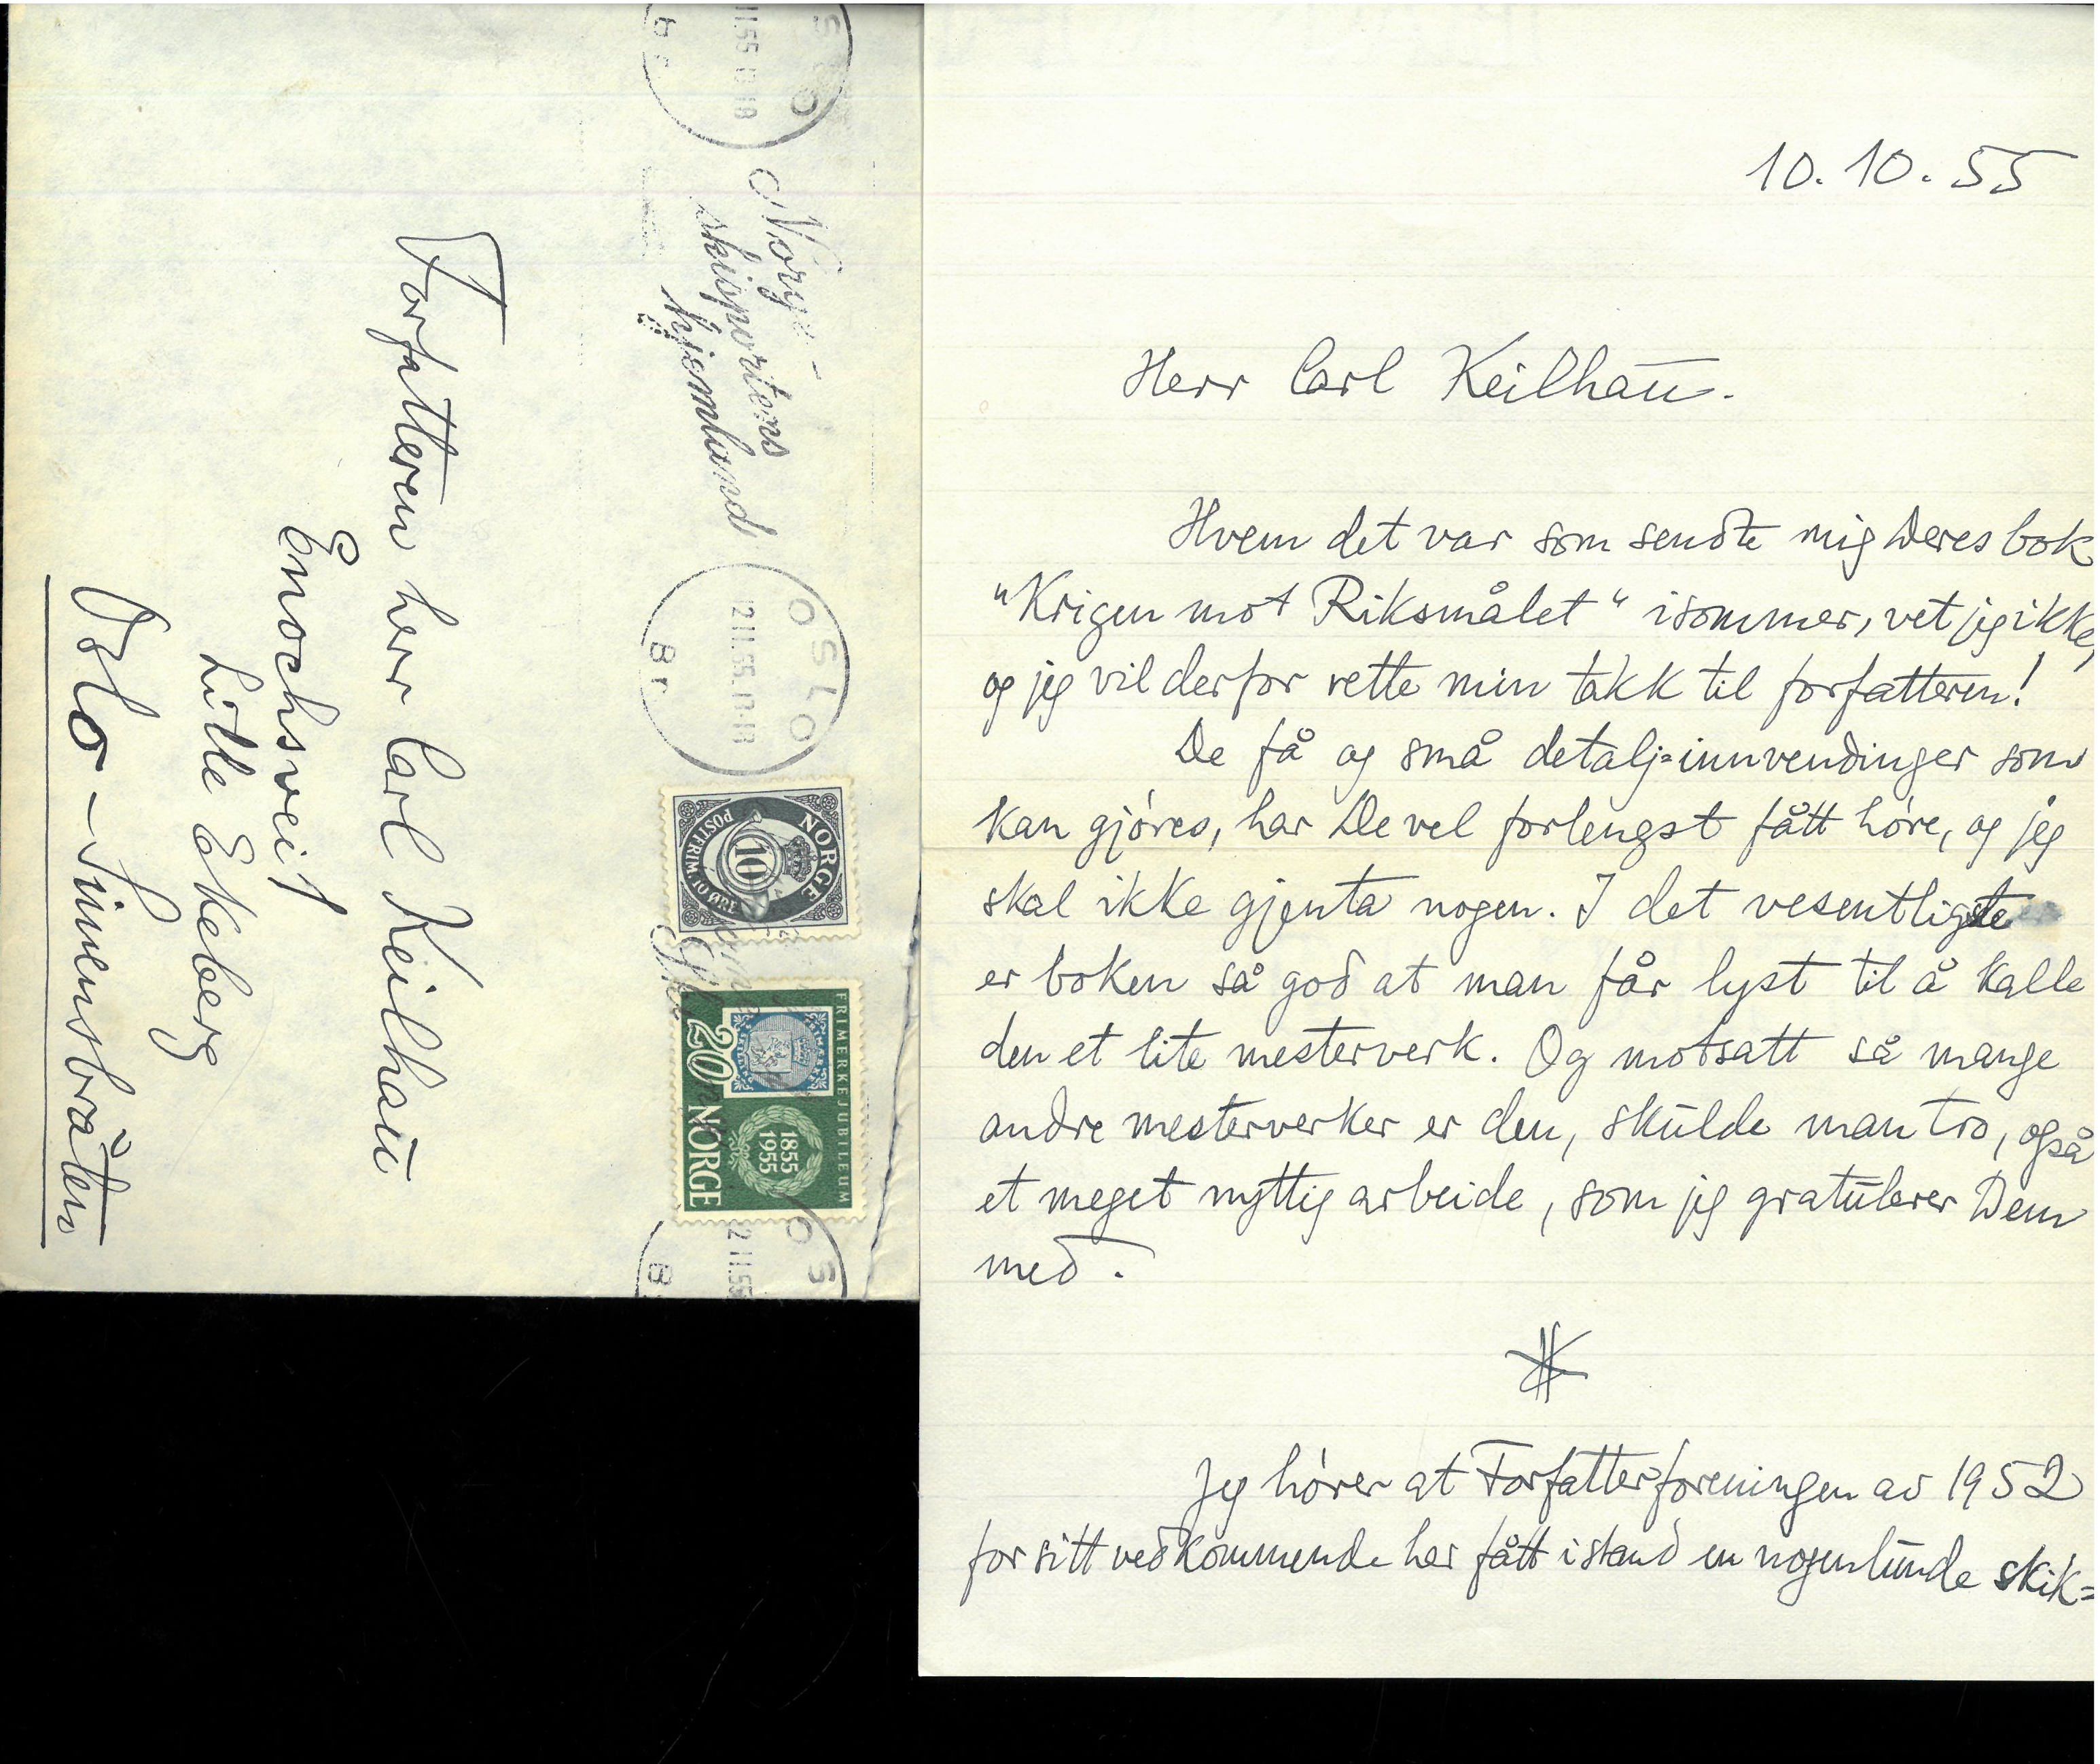 Forfatteren herr Carl Keilhau
Enochsvei 1
Lille Ekeberg
Oslo - Simensbråten
Norge -
skisportens
hjemland
OSLO
12 11.55.17-18
Br
NORGE
10
POSTFRIM. 10 ØRE
FRIMERKEJUBILEUM
1855
1955
20
NORGE
10.10.55
Herr Carl Keilhau.
Hvem det var som sendte mig Deres bok
"Krigen mot Riksmålet" isommer, vet jeg ikke,
og jeg vil derfor rette min takk til forfatteren!
De få og små detalj=innvendinger som
kan gjøres, har De vel forlengst fått høre, og jeg
skal ikke gjenta nogen. I det vesentligste
er boken så god at man får lyst til å kalle
den et lite mesterverk. Og motsatt så mange
andre mesterverker er den, skulde man tro, også
et meget nyttig arbeide, som jeg gratulerer Dem
med.
Jeg hører at Forfatterforeningen av 1952
for sitt vedkommende har fått istand en nogenlunde skik=